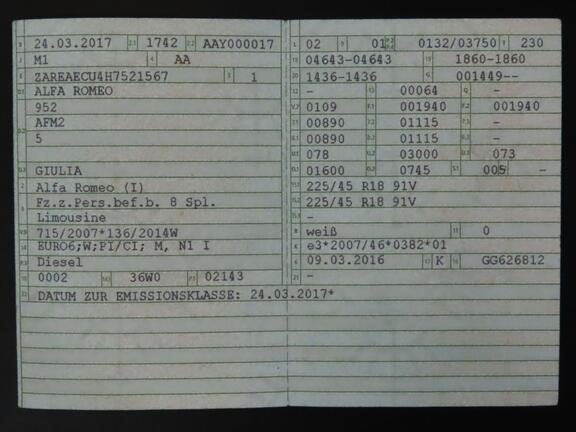 24.03.2017 1742 AAY000017
M1 AA
ZAREAECU4H7521567 1
ALFA ROMEO
952
AFM2
5
GIULIA
Alfa Romeo (I)
Fz.z.Pers.bef.b. 8 Spl.
Limousine
715/2007*136/2014W
EURO6;W;PI/CI; M, N1 I
Diesel
0002 36W0 02143
DATUM ZUR EMISSIONSKLASSE: 24.03.2017*
02 01 0132/03750 230
04643-04643 1860-1860
1436-1436 001449--
- 00064 -
0109 001940 001940
00890 01115 -
00890 01115 -
078 03000 073
01600 0745 005 -
225/45 R18 91V
225/45 R18 91V
-
weiß 0
e3*2007/46*0382*01
09.03.2016 K GG626812
-